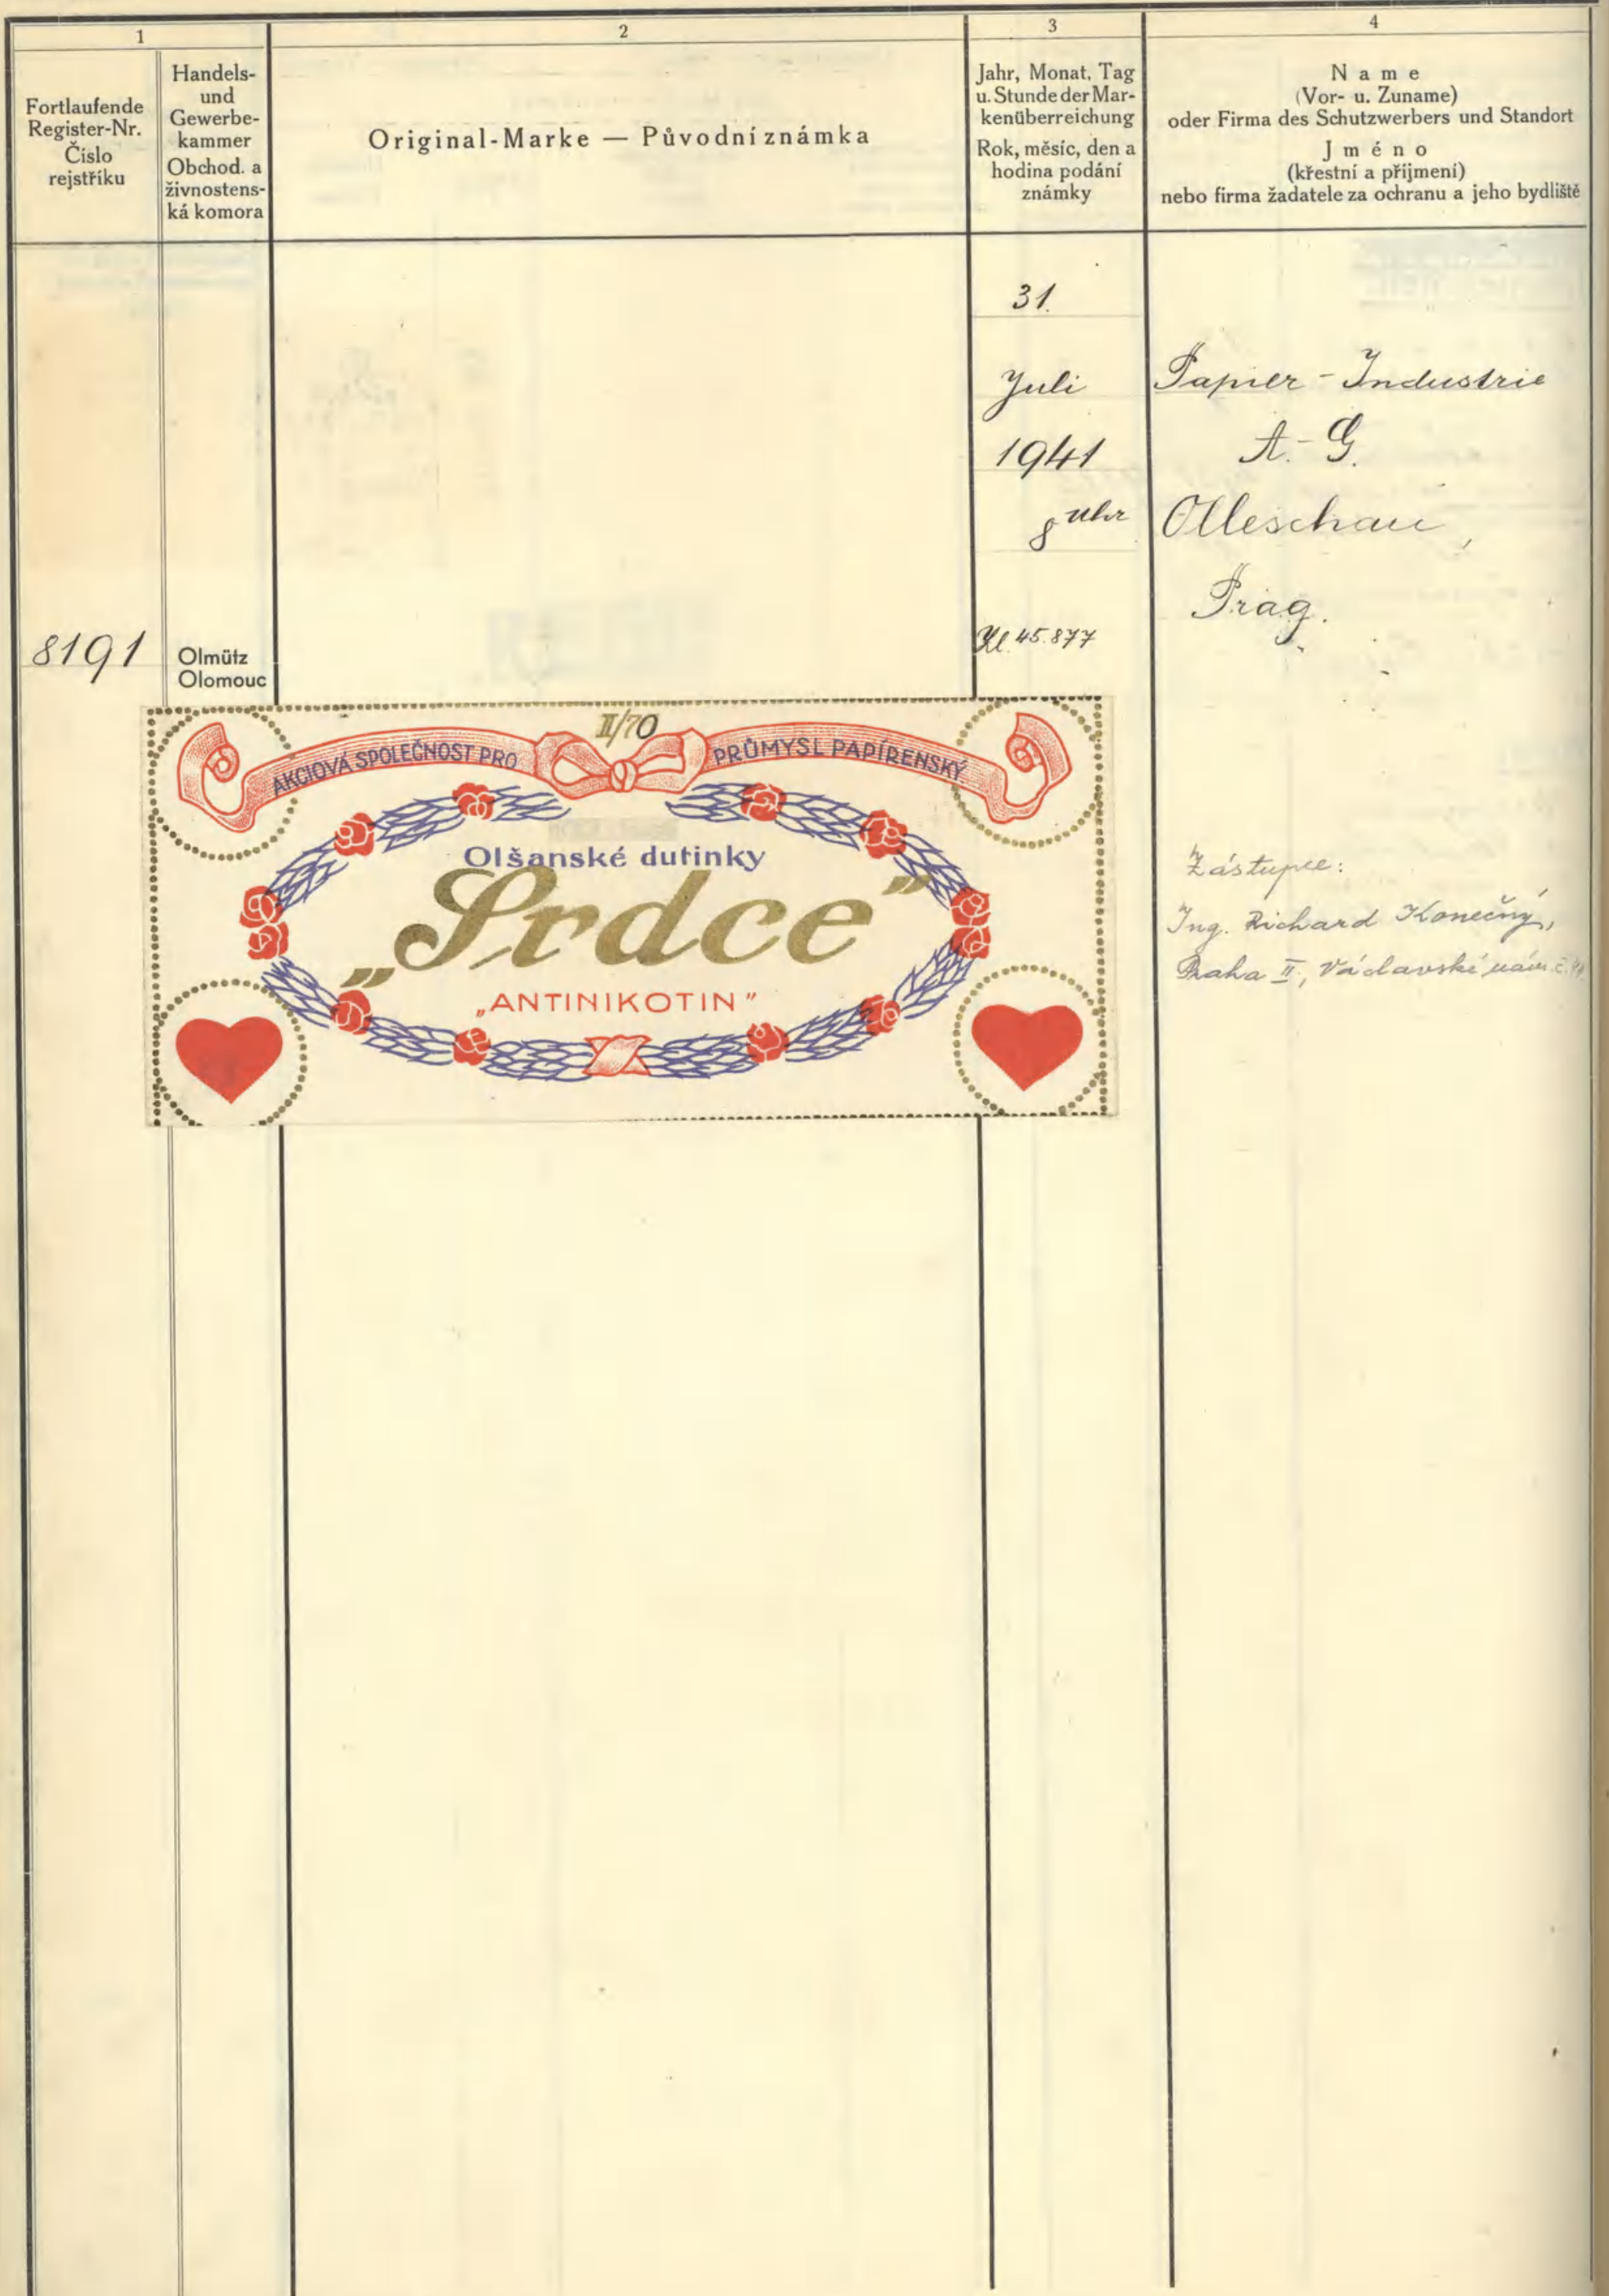 1
Fortlaufende
Register-Nr.
Číslo
rejstříku
Handels-
und
Gewerbe-
kammer
Obchod. a
živnostens-
ká komora
2
Original-Marke — Původní známka
3
Jahr, Monat, Tag
u. Stunde der Mar-
kenüberreichung
Rok, měsíc, den a
hodina podání
známky
4
Name
(Vor- u. Zuname)
oder Firma des Schutzwerbers und Standort
Jméno
(křestní a příjmení)
nebo firma žadatele za ochranu a jeho bydliště
8191
Olmütz
Olomouc
II/70
AKCIOVÁ SPOLEČNOST PRO PRŮMYSL PAPÍRENSKÝ
Olšanské dutinky
„Srdce"
„ANTINIKOTIN"
31.
Juli
1941
8 Uhr
Kl. 45.877
Papier-Industrie
A.-G.
Olleschau,
Prag.
Zástupce:
Ing. Richard Konečný,
Praha II, Václavské nám. č.